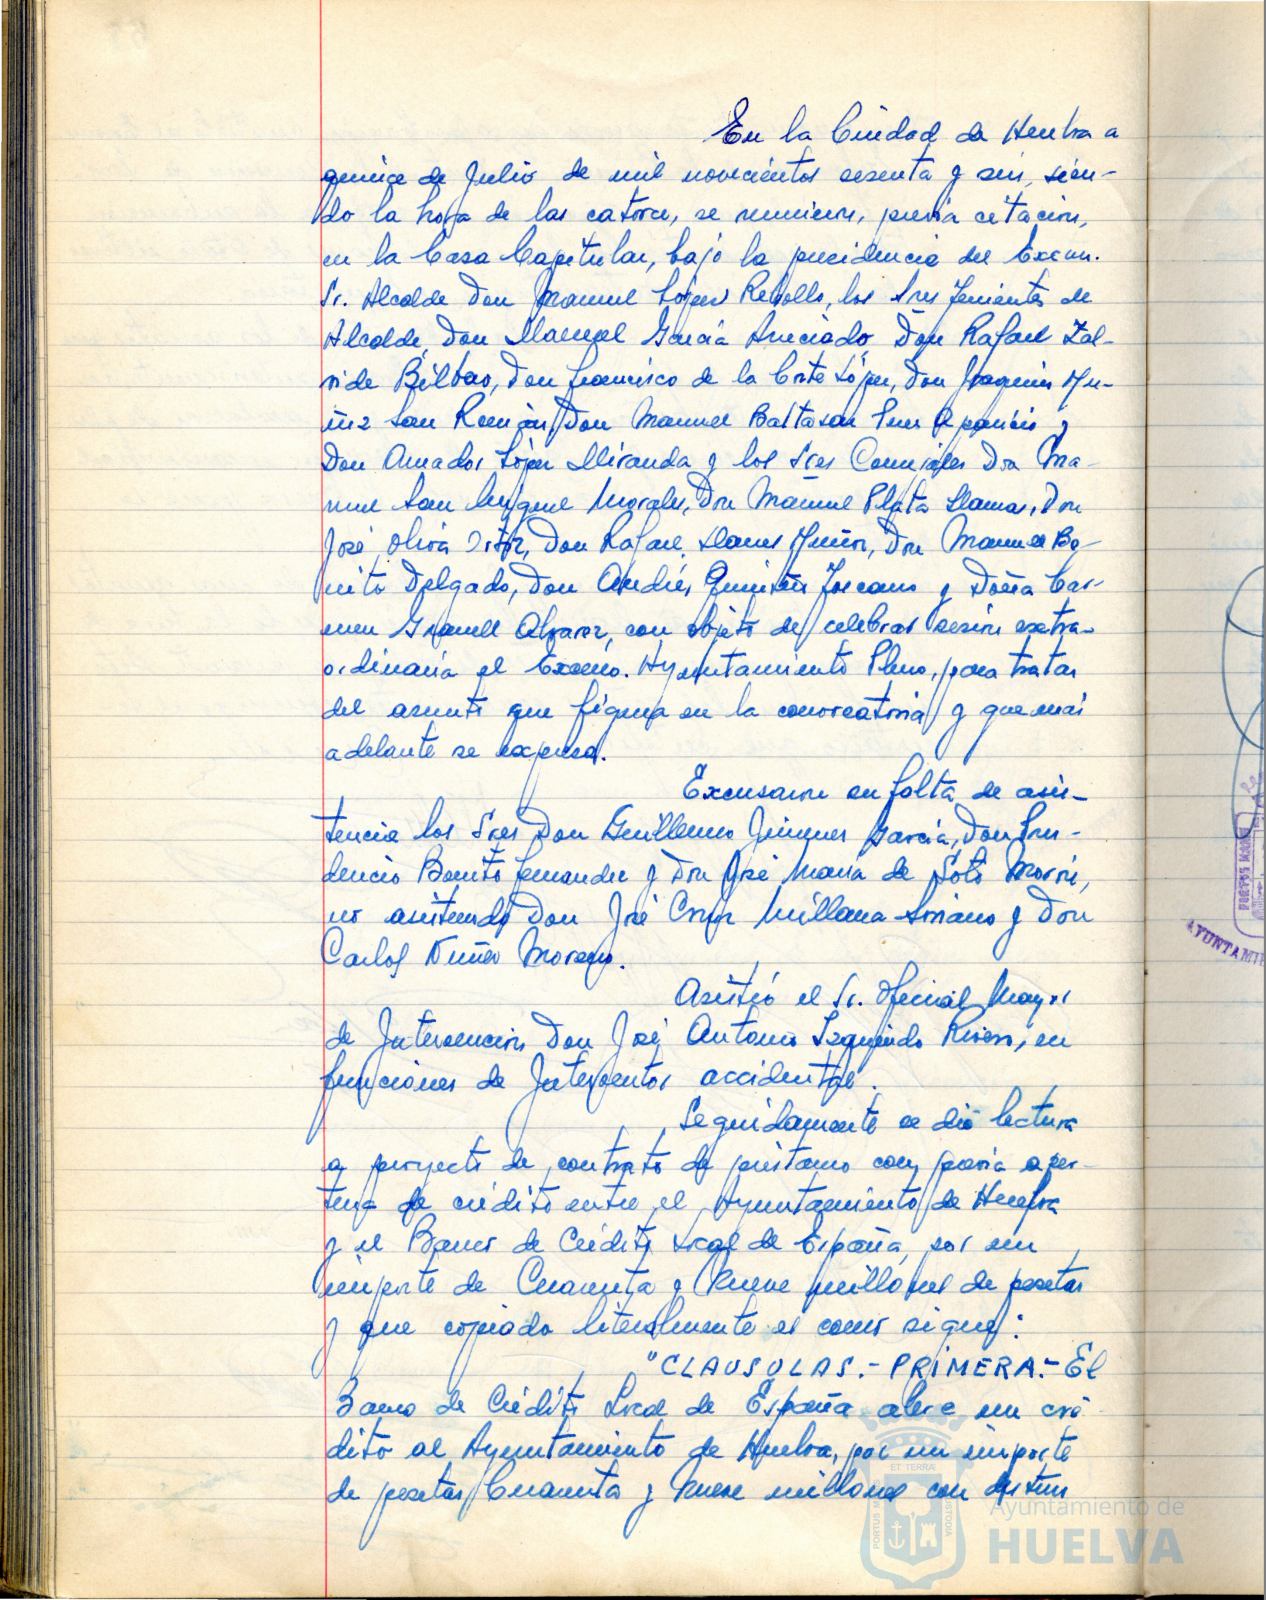 En la Ciudad de Huelva a
quince de Julio de mil novecientos sesenta y seis, sien-
do la hora de las catorce, se reunieron, previa citación,
en la Casa Capitular, bajo la presidencia del Excmo.
Sr. Alcalde Don Manuel López Rebollo, los Sres Tenientes de
Alcalde, Don Manuel García Don Rafael Zal-
vide Bilbao, Don Francisco de la Corte López, Don Joaquín Mu-
ñiz San Román, Don Manuel Baltasar Aparicio y
Don Amador López Miranda y los Sres Concejales Don Ma-
nuel San Miguel Morales, Don Manuel Plata Llamas, Don
José Oliva Don Rafael Llanes Muñoz, Don Manuel Be-
nito Delgado, Don Andrés Quintín Toscano y Doña Car-
men Granell Alvarez, con objeto de celebrar sesión extra-
ordinaria el Excmo. Ayuntamiento Pleno, para tratar
del asunto que figura en la convocatoria y que más
adelante se expresa.
Excusaron su falta de asis-
tencia los Sres Don Guillermo Jimenez García, Don Pru-
dencio Benito Fernandez y Don José María de Soto Morón,
no asistiendo Don José Cruz Millana Soriano y Don
Carlos Nuñez Moreno.
Asistió el Sr. Oficial Mayor
de Intervención Don José Antonio Izquierdo Rivero, en
funciones de Interventor accidental.
Seguidamente se dió lectura
a proyecto de contrato de préstamo con previa aper-
tura de crédito entre el Ayuntamiento de Huelva
y el Banco de Crédito Local de España, por un
importe de Cuarenta y Nueve millones de pesetas
y que copiado literalmente es como sigue:
"CLAUSULAS.- PRIMERA.- El
Banco de Crédito Local de España abre un cré-
dito al Ayuntamiento de Huelva, por un importe
de pesetas Cuarenta y Nueve millones con destino
Ayuntamiento de
HUELVA
PORTUS MARIS
ET TERRAE
CUSTODIA
PORTUS MARIS
AYUNTAMIE